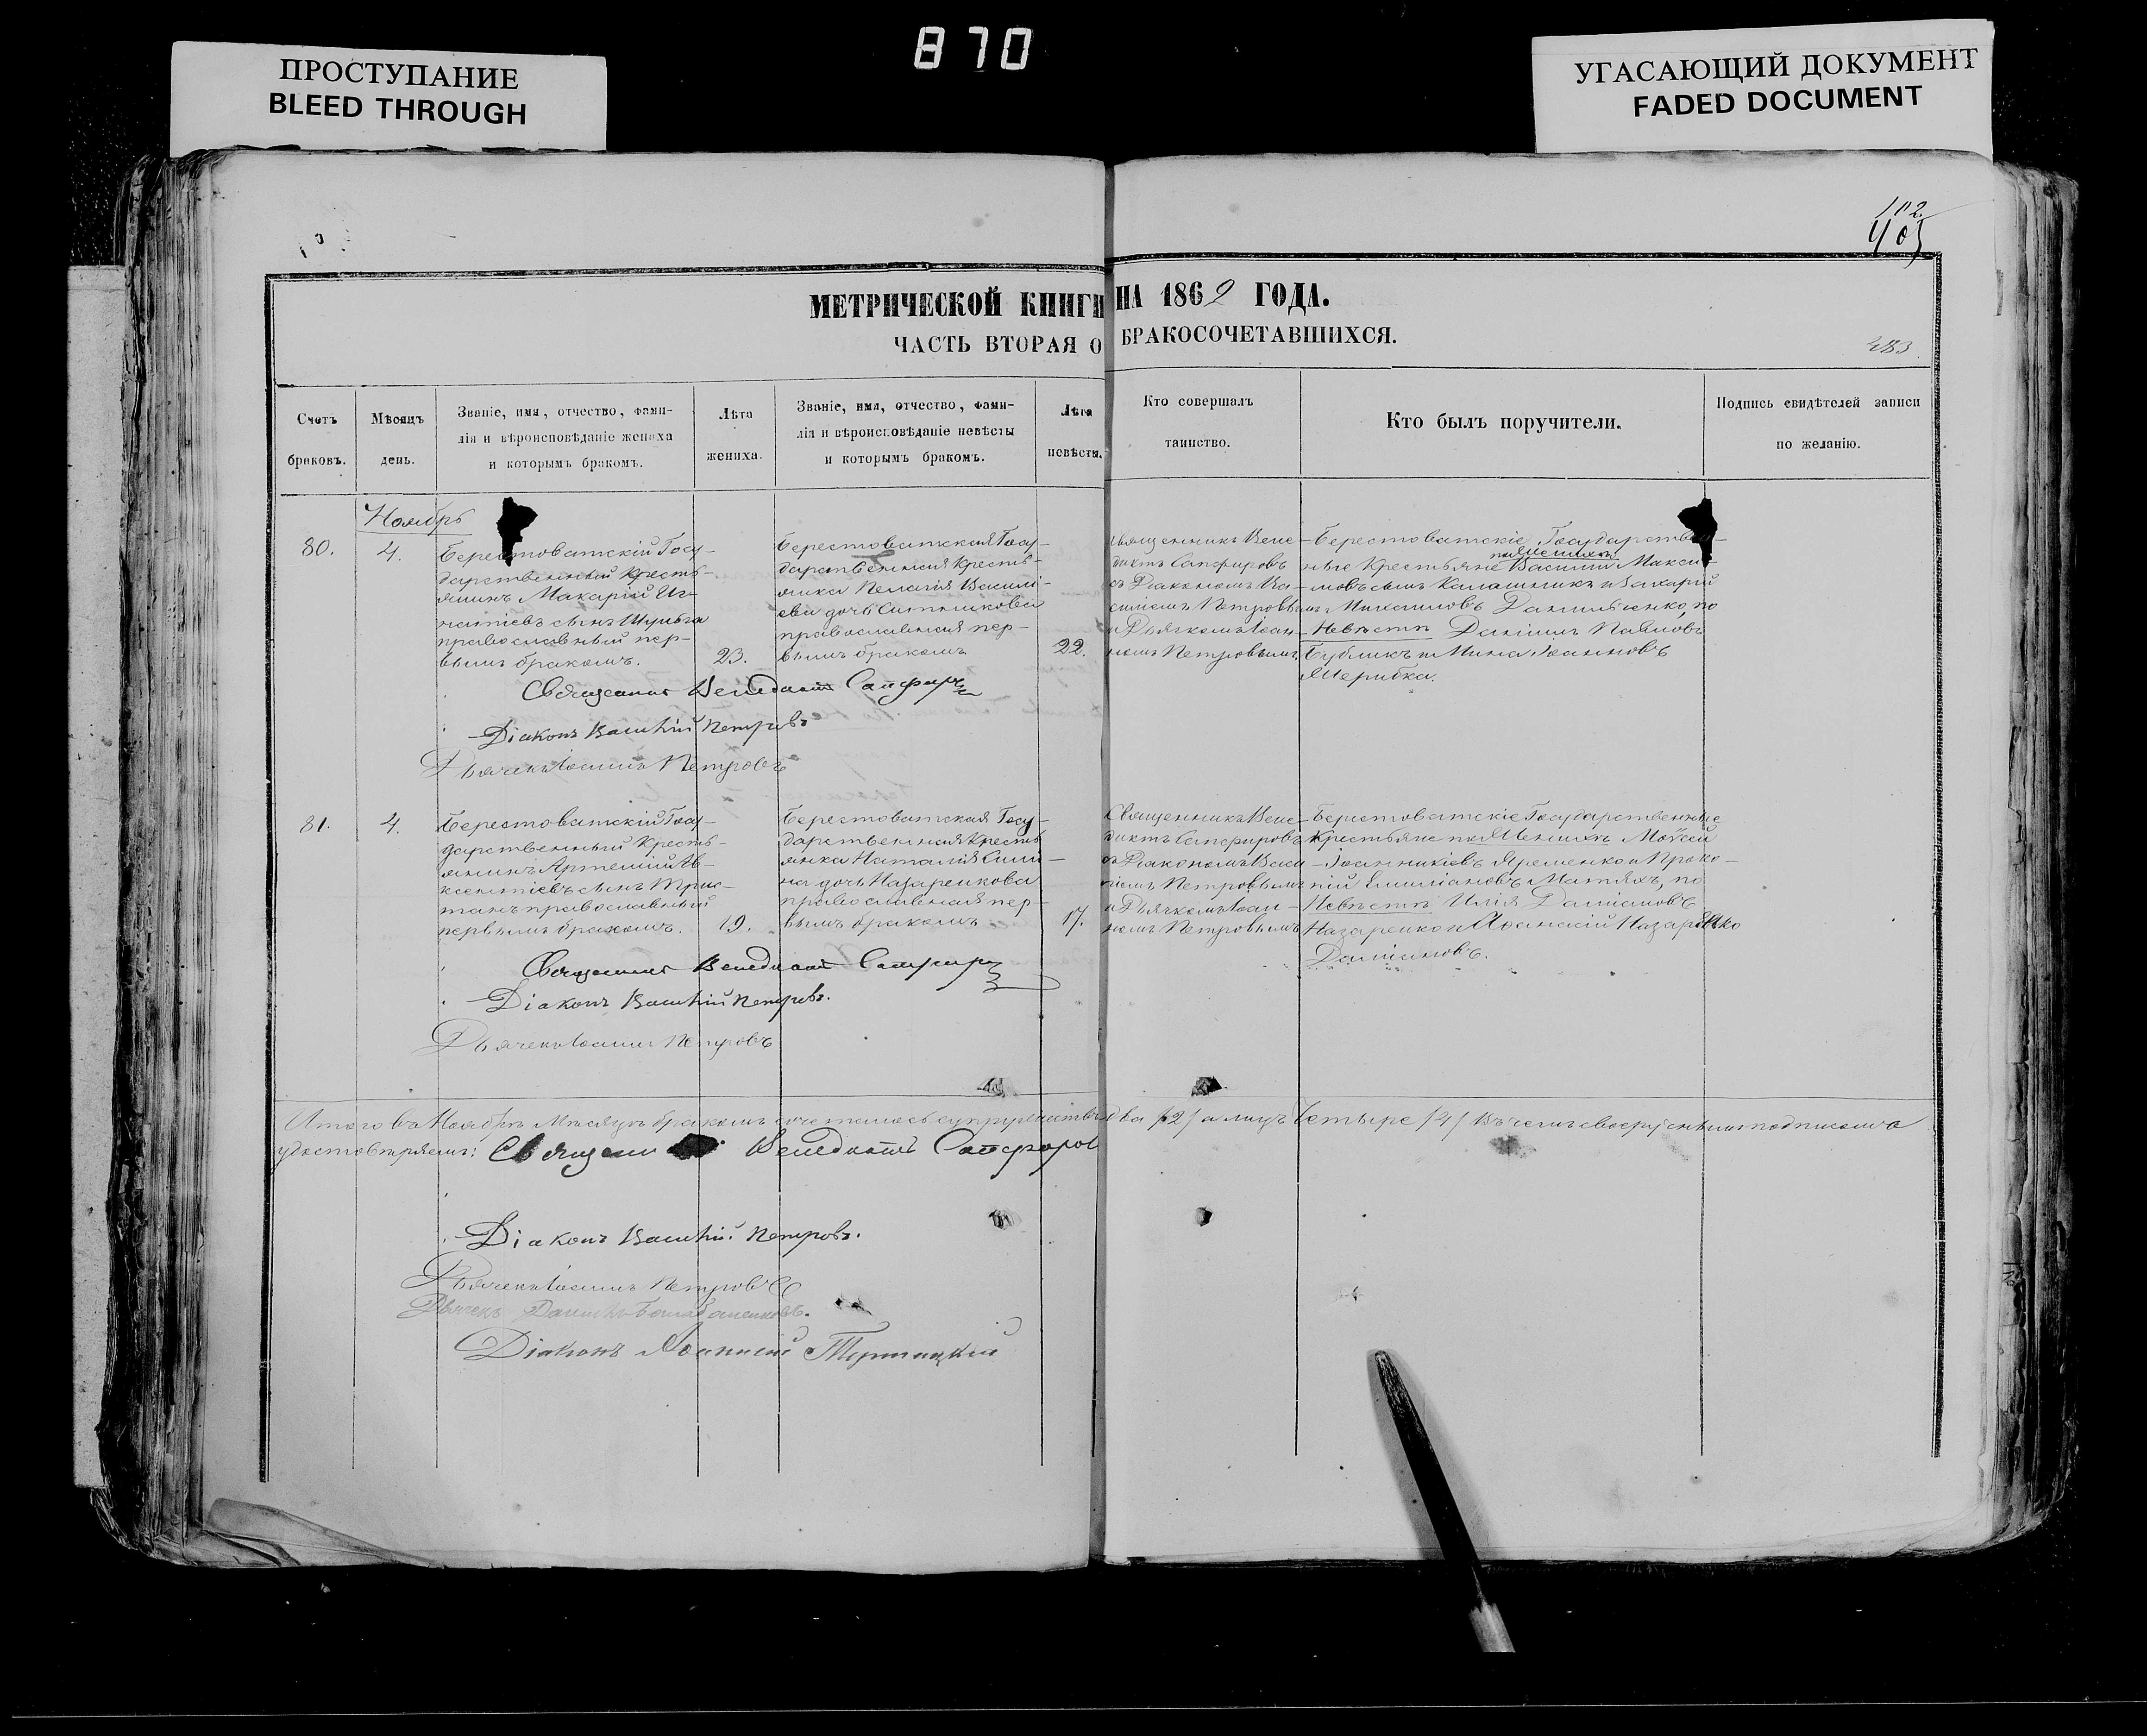 870
ПРОСТУПАНИЕ
BLEED THROUGH
УГАСАЮЩИЙ ДОКУМЕНТ
FADED DOCUMENT
112
405
МЕТРИЧЕСКОЙ КНИГИ НА 1862 ГОДА.
ЧАСТЬ ВТОРАЯ О БРАКОСОЧЕТАВШИХСЯ.
483
Счетъ
браковъ.
Мѣсяцъ
день.
Званіе, имя, отчество, фами-
лія и вѣроисповѣданіе жениха
и которымъ бракомъ.
Лѣта
жениха.
Званіе, имя, отчество, фами-
лія и вѣроисповѣданіе невѣсты
и которымъ бракомъ.
Лѣта
невѣсты.
Кто совершалъ
таинство.
Кто былъ поручители.
Подпись свидѣтелей записи
по желанію.
Ноябрь
80.
4.
Берестоватскій Госу-
дарственный Кресть-
янинъ Макарій Иг-
натіевъ сынъ Шульга
православный пер-
вымъ бракомъ.
23.
Берестоватская Госу-
дарственная Кресть-
янка Пелагія Василі-
ева дочь Ситникова
православная пер-
вымъ бракомъ
22.
Священникъ Вене-
диктъ Сапфировъ
съ Діакономъ Ва-
силіемъ Петровымъ
и Дьячкомъ Іоан-
номъ Петровымъ
Берестоватскіе Государствен-
ные Крестьяне по Женихѣ Василій Макси-
мовъ сынъ Калашникъ и Захарій
Михаиловъ Данильченко, по
Невѣстѣ Даніилъ Павловъ
Бубликъ и Мина Іоанновъ
Жерибка.
Священникъ Венедиктъ Сапфировъ
Діаконъ Василій Петровъ
Дьячекъ Іоаннъ Петровъ
81.
4.
Берестоватскій Госу-
дарственный Кресть-
янинъ Артемій Ав-
ксентіевъ сынъ Трис-
танъ православный
первымъ бракомъ.
19.
Берестоватская Госу-
дарственная Кресть-
янка Наталія
на дочь Назаренкова
православная пер-
вымъ бракомъ
17.
Священникъ Вене-
диктъ Сапфировъ
съ Діакономъ Васи-
ліемъ Петровымъ
и Дьячкомъ Іоан-
номъ Петровымъ
Берестоватскіе Государственные
Крестьяне по Женихѣ Моѵсей
Іоанникіевъ Яременко и Проко-
пій Емиліановъ Матяхъ, по
Невѣстѣ Илія Даміановъ
Назаренко и Аѳанасій Назаренко
Даміановъ.
Священникъ Венедиктъ Сапфировъ
Діаконъ Василій Петровъ.
Дьячекъ Іоаннъ Петровъ
Итого въ Ноябрѣ Мѣсяцѣ бракомъ сочеталось супружествъ два /2/ а лицъ Четыре /4/ Въ чемъ своеручнымъ подписомъ
удостовѣряемъ: Священникъ Венедиктъ Сапфировъ
Діаконъ Василій Петровъ.
Дьячекъ Іоаннъ Петровъ
Дьячекъ
Діаконъ